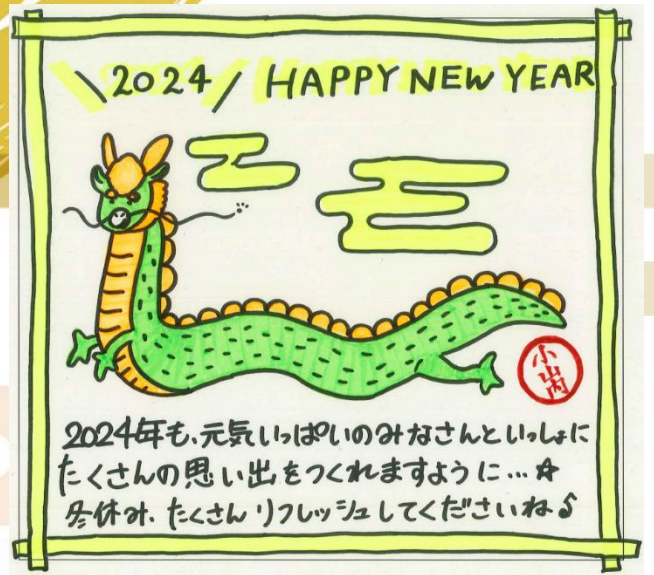 \2024/ HAPPY NEW YEAR
小山内
2024年も、元気いっぱいのみなさんといっしょに
たくさんの思い出をつくれますように…☆
冬休み、たくさんリフレッシュしてくださいね♪